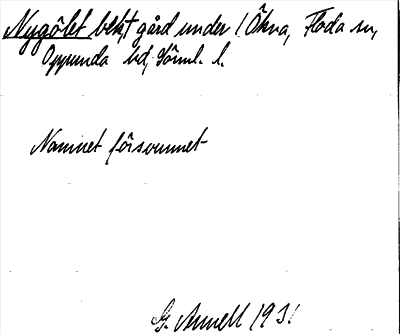 Nygölet bebt gård under ! Ökna, Floda sn,
Oppunda hd, Sörml. l.
Namnet försvunnet
G. Annell 1931